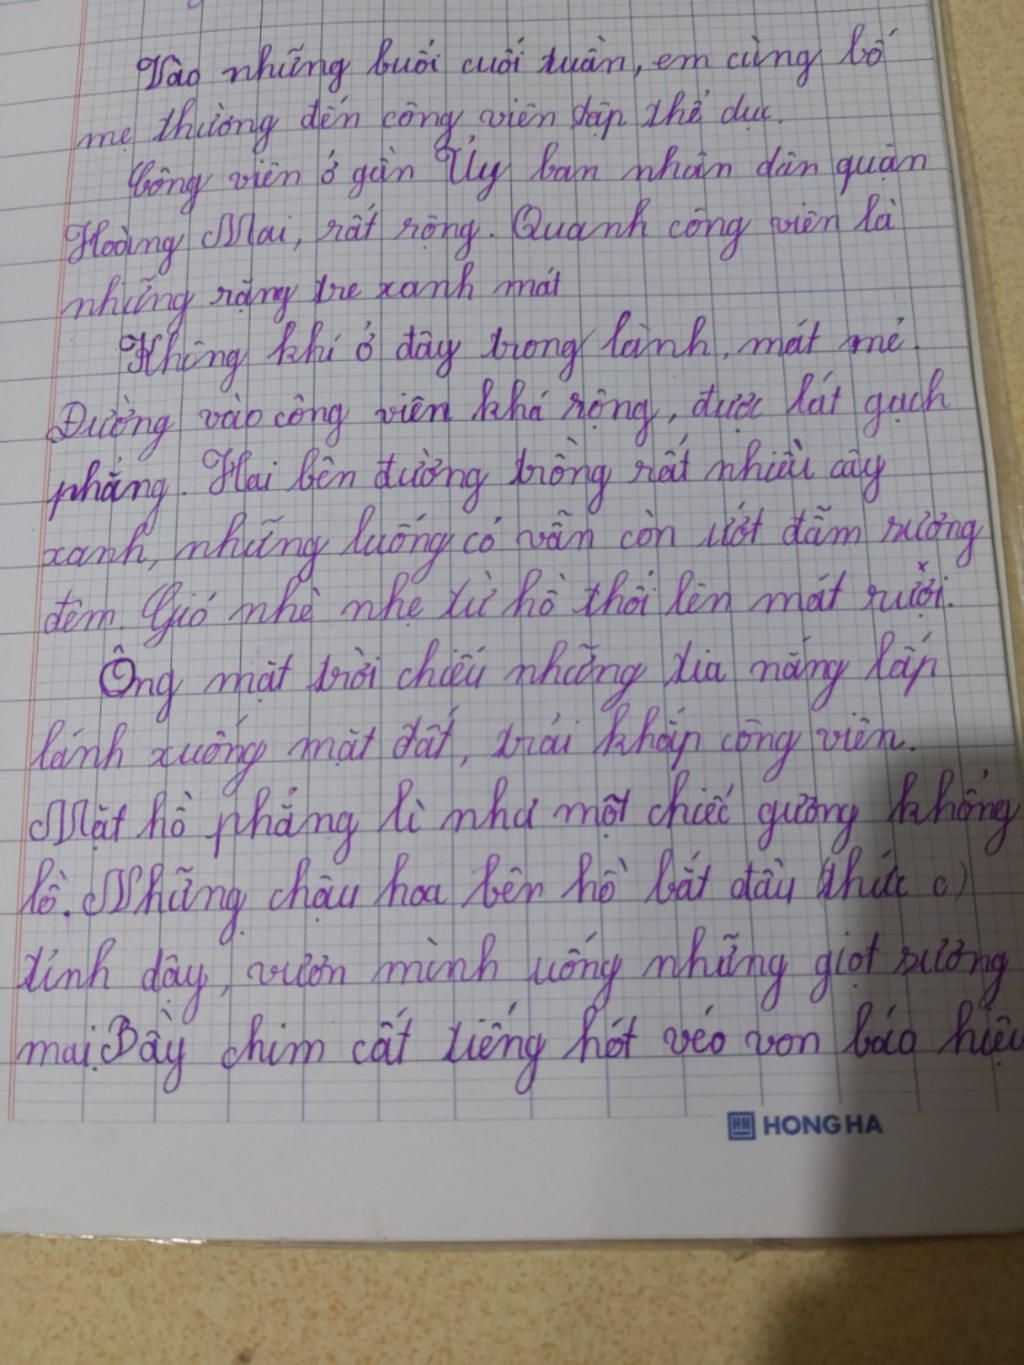 Vào những buổi cuối tuần, em cùng bố
mẹ thường đến công viên tập thể dục.
Công viên ở gần Ủy ban nhân dân quận
Hoàng Mai, rất rộng. Quanh công viên là
những rặng tre xanh mát
Không khí ở đây trong lành, mát mẻ.
Đường vào công viên khá rộng, được lát gạch
phẳng. Hai bên đường trồng rất nhiều cây
xanh, những luống cỏ vẫn còn ướt đẫm sương
đêm. Gió nhè nhẹ từ hồ thổi lên mát rượi.
Ông mặt trời chiếu những tia nắng lấp
lánh xuống mặt đất, trải khắp công viên.
Mặt hồ phẳng lì như một chiếc gương khổng
lồ. Những chậu hoa bên hồ bắt đầu thức
tỉnh dậy, vươn mình uống những giọt sương
mai. Bầy chim cất tiếng hót véo von báo hiệu
HONG HA